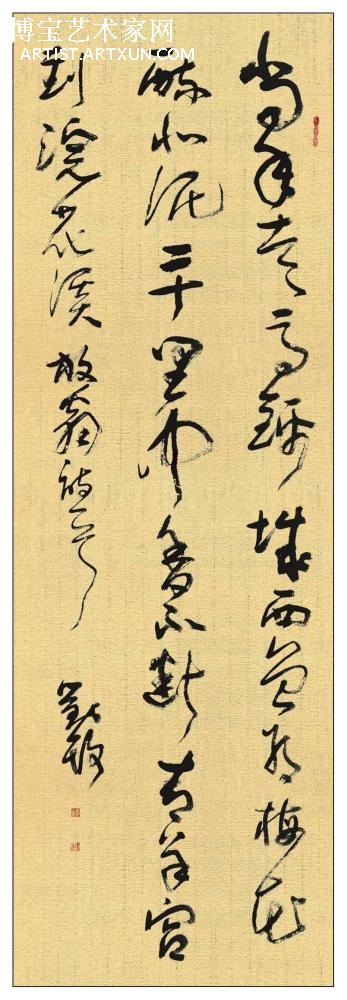 博宝艺术家网
ARTIST.ARTXUN.COM
當年走馬錦城西曾為梅花
醉似泥二十里中香不斷青羊宮
到浣花溪 放翁詩